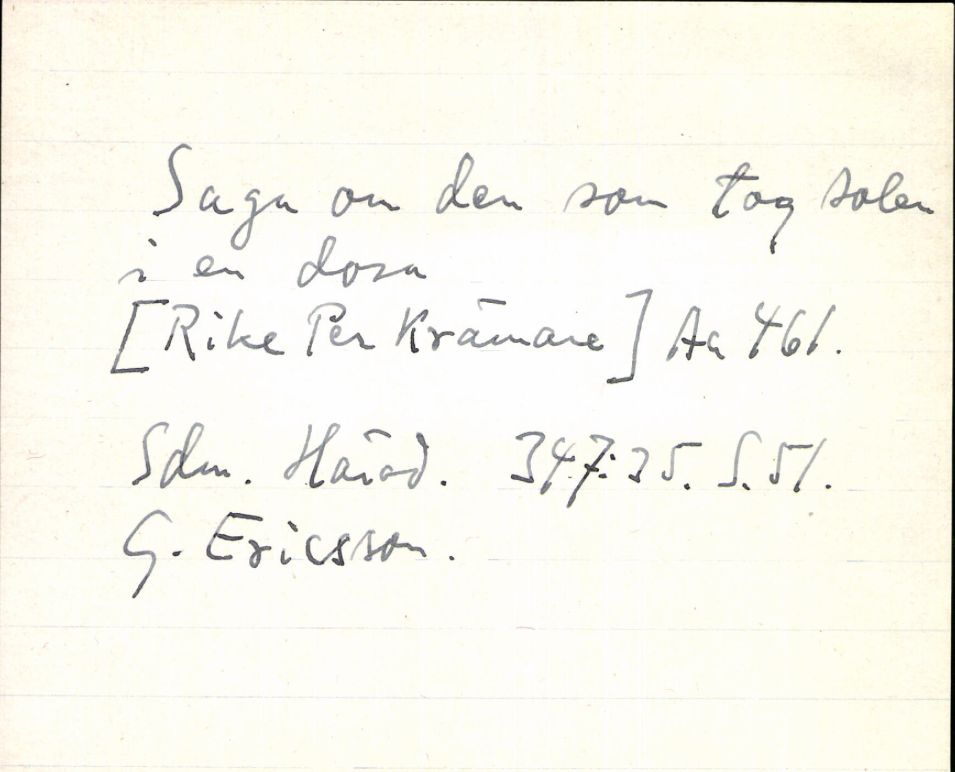 Saga om den som tog solen
i en dosa
[Rike Per Krämare] Aa 461.
Sdm. Härad. 347:35. S.51.
G. Ericsson.